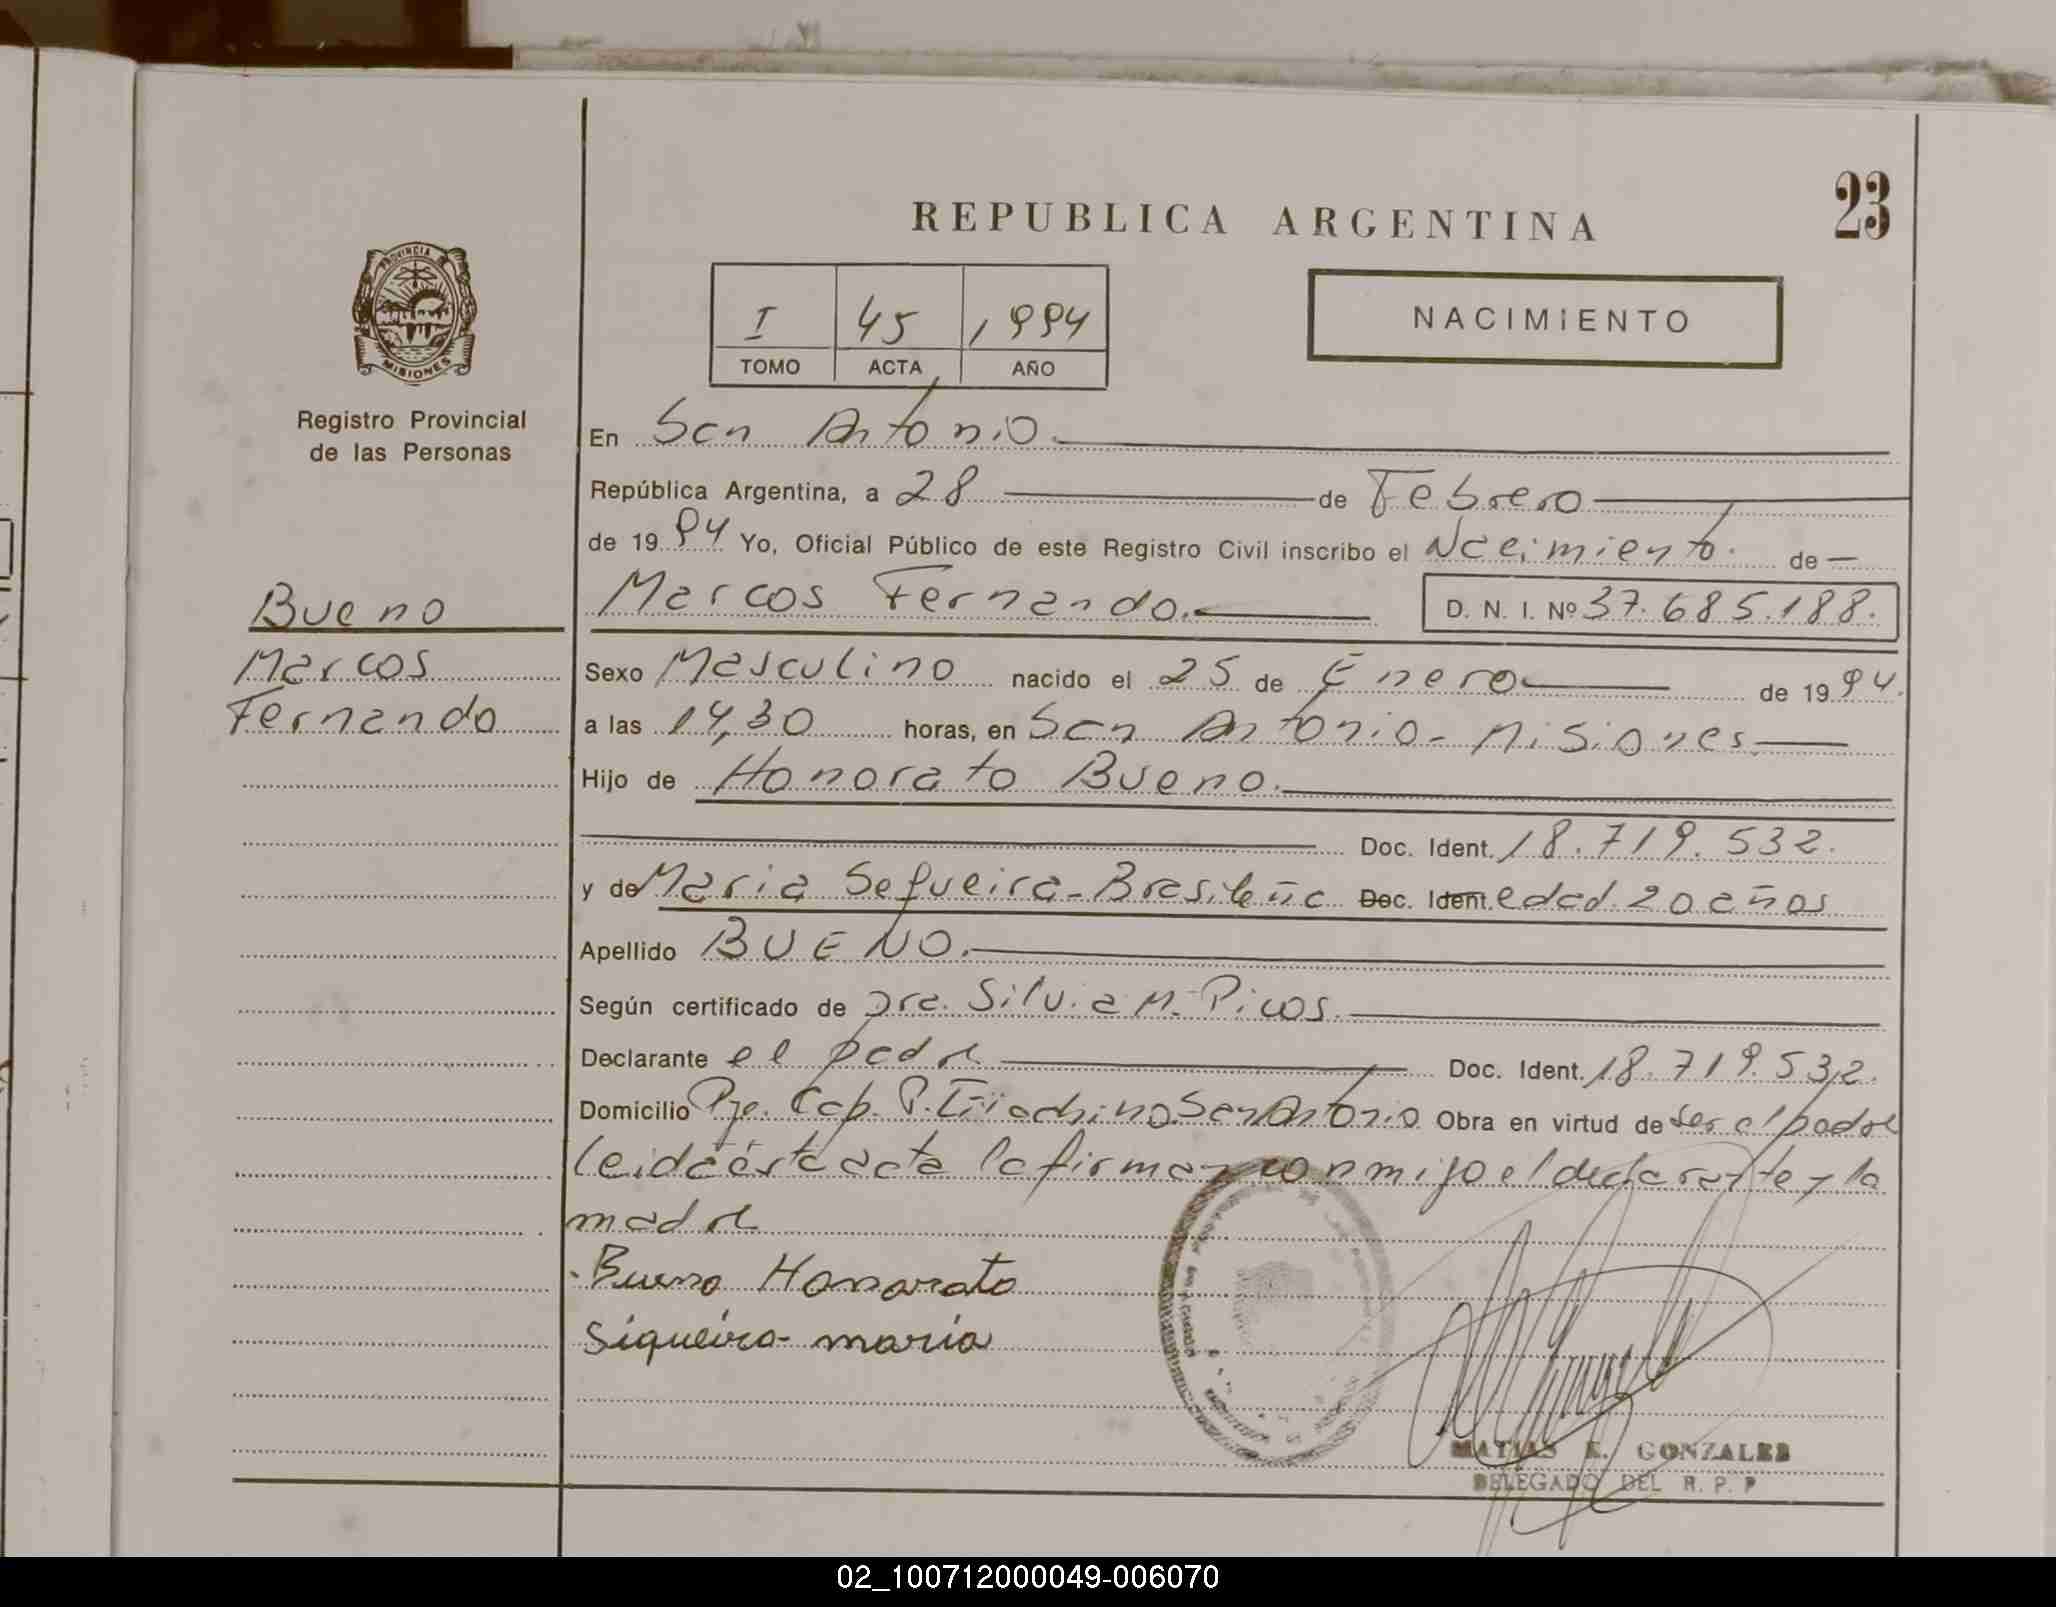 23
REPUBLICA ARGENTINA
PROVINCIA DE
MISIONES
I 45 1994
TOMO ACTA AÑO
NACIMIENTO
Registro Provincial
de las Personas
En San Antonio
República Argentina, a 28 de Febrero
de 1994 Yo, Oficial Público de este Registro Civil inscribo el Nacimiento. de
Bueno
Marcos
Fernando
Marcos Fernando. D. N. I. Nº 37.685.188.
Sexo Masculino nacido el 25 de Enero de 1994.
a las 14,30 horas, en San Antonio - Misiones
Hijo de Honorato Bueno.
Doc. Ident. 18.719.532.
y de Maria Sequeira - Brasileña Doc. Ident. edad 20 años
Apellido BUENO.
Según certificado de Dra. Silvia M. Picos.
Declarante el padre Doc. Ident. 18.719.532.
Domicilio Pje. Cap. P. San Antonio Obra en virtud de ser el padre
leida ésta acta la firman conmigo el declarante y la
madre
Bueno Honorato
Siqueira - maria
MATIAS E. GONZALES
DELEGADO DEL R. P. P
02_100712000049-006070